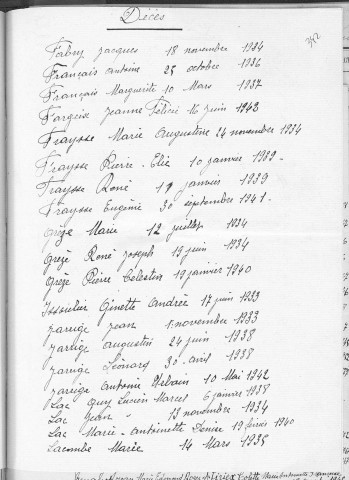 Décès
342
Fabry Jacques 18 novembre 1934
Français Antoine 25 octobre 1936
Français Marguerite 10 Mars 1937
Fargeix Jeanne Félicie 16 juin 1943
Fraysse Marie Augustine 24 novembre 1934
Fraysse Pierre-Elie 10 janvier 1939
Fraysse René 19 janvier 1939
Fraysse Eugénie 30 septembre 1941
Grèze Marie 12 juillet 1934
Grèze René Joseph 19 juin 1934
Grèze Pierre Célestin 19 janvier 1940
Ginette Andrée 17 juin 1933
Jarrige Jean 1 novembre 1933
Jarrige Augustin 24 juin 1938
Jarrige Léonard 30 avril 1938
Jarrige Antoine 10 Mai 1942
Lac Guy Lucien Marcel 6 janvier 1938
Lac Jean 13 novembre 1934
Lac Marie-Antoinette Denise 19 février 1940
Lacombe Marie 14 Mars 1935